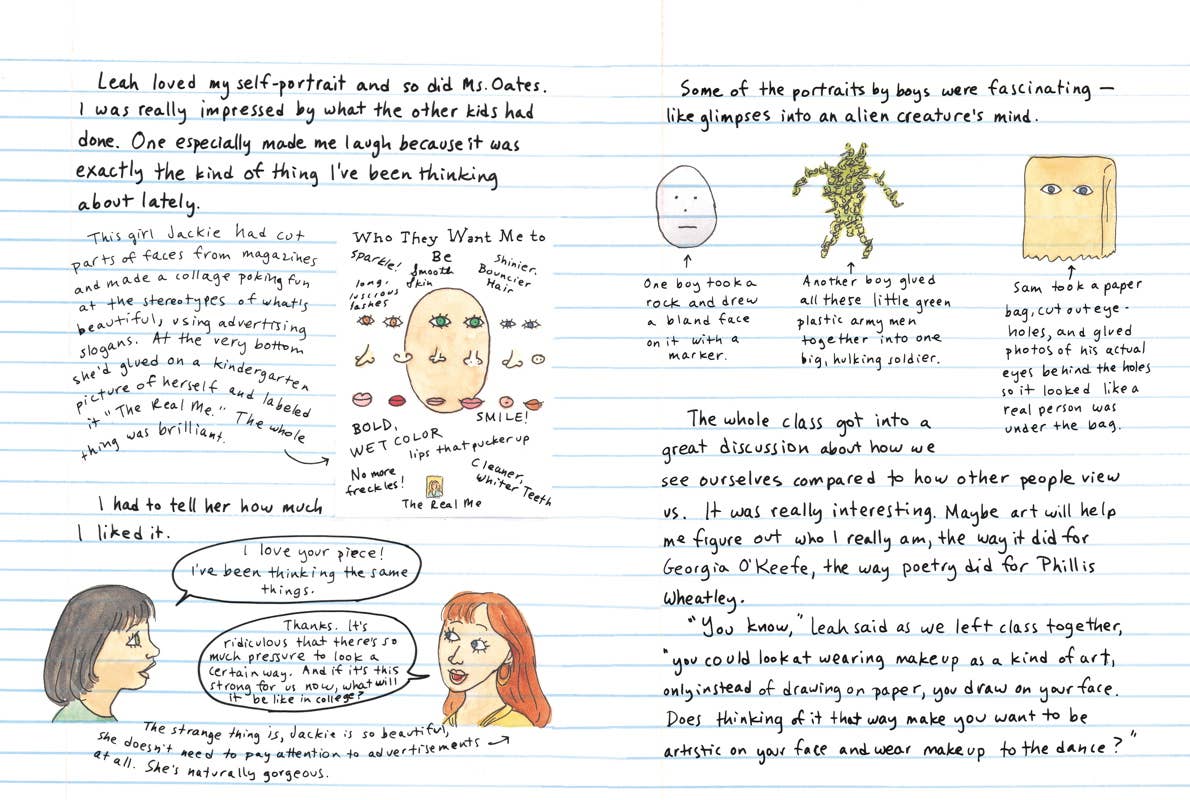 Leah loved my self-portrait and so did Ms. Oates.
I was really impressed by what the other kids had
done. One especially made me laugh because it was
exactly the kind of thing I've been thinking
about lately.
This girl Jackie had cut
parts of faces from magazines
and made a collage poking fun
at the stereotypes of what's
beautiful, using advertising
slogans. At the very bottom
she'd glued on a kindergarten
picture of herself and labeled
it "The Real Me." The whole
thing was brilliant.
Who They Want Me to
Be
Sparkle!
Smooth
Skin
Shinier.
Bouncier
Hair
long,
luscious
lashes
BOLD,
WET COLOR
SMILE!
lips that pucker up
No more
freckles!
Cleaner,
Whiter Teeth
The Real Me
I had to tell her how much
I liked it.
I love your piece!
I've been thinking the same
things.
Thanks. It's
ridiculous that there's so
much pressure to look a
certain way. And if it's this
strong for us now, what will
it be like in college?
The strange thing is, Jackie is so beautiful,
she doesn't need to pay attention to advertisements
at all. She's naturally gorgeous.
Some of the portraits by boys were fascinating —
like glimpses into an alien creature's mind.
One boy took a
rock and drew
a bland face
on it with a
marker.
Another boy glued
all these little green
plastic army men
together into one
big, hulking soldier.
Sam took a paper
bag, cut out eye-
holes, and glued
photos of his actual
eyes behind the holes
so it looked like a
real person was
under the bag.
The whole class got into a
great discussion about how we
see ourselves compared to how other people view
us. It was really interesting. Maybe art will help
me figure out who I really am, the way it did for
Georgia O'Keefe, the way poetry did for Phillis
Wheatley.
"You know," Leah said as we left class together,
"you could look at wearing makeup as a kind of art,
only instead of drawing on paper, you draw on your face.
Does thinking of it that way make you want to be
artistic on your face and wear makeup to the dance?"